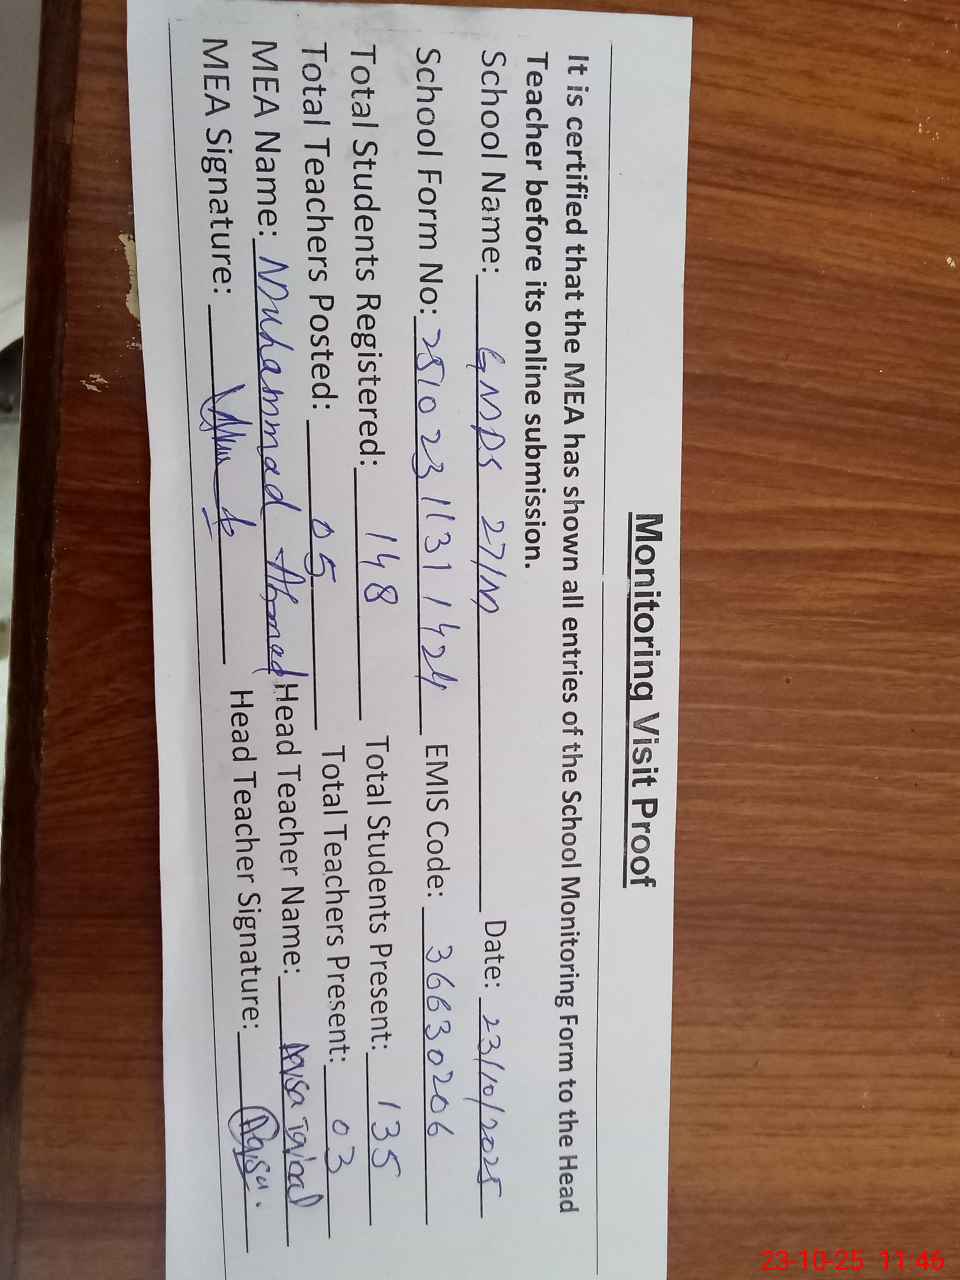 Monitoring Visit Proof
It is certified that the MEA has shown all entries of the School Monitoring Form to the Head
Teacher before its online submission.
School Name: GMPS 27/M Date: 23/10/2025
School Form No: 25102311311424 EMIS Code: 36630206
Total Students Registered: 148 Total Students Present: 135
Total Teachers Posted: 05 Total Teachers Present: 03
MEA Name: Muhammad Ahmad Head Teacher Name: Aqsa Iqbal
MEA Signature: Head Teacher Signature: Aqsa.
23-10-25 11:45